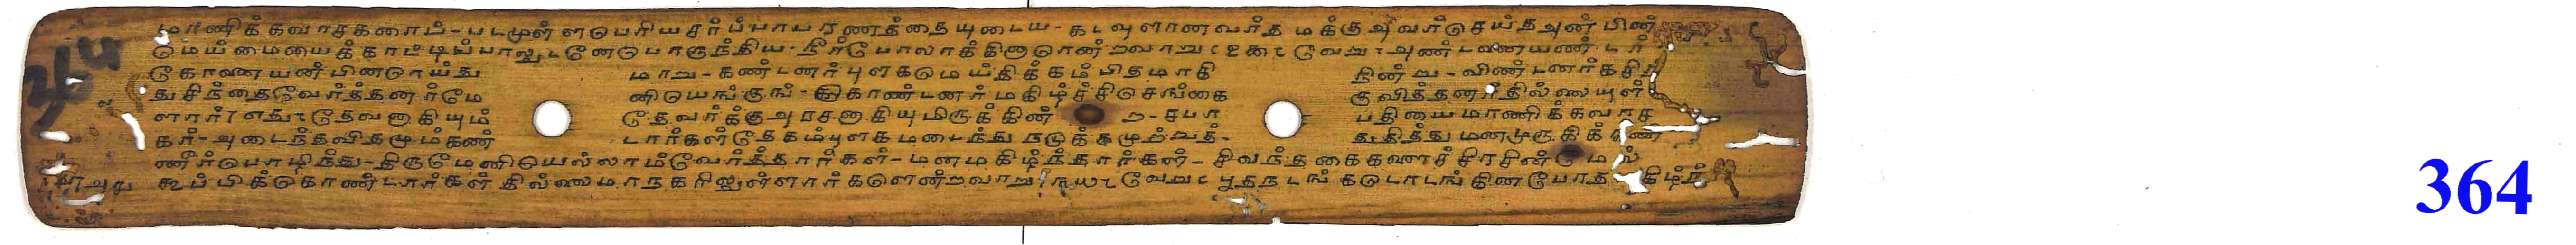 மாணிக்கவாசகனாய்-படமுள்ளபெரியசர்ப்பாபரணத்தையுடைய-கடவுளானவர்தமக்குஅவர்செய்தஅன்பின்
மெய்மையைக்காட்டிப்பாலுடனேபொருந்திய-நீர்போலாக்கினாரென்றவாறு வேறு அண்டனையண்டர்
கோனையன்பினொய்து மாறு-கண்டனர்புளகமெய்திக்கம்பிதமாகி நின்று-விண்டனர்கசிந்
துசிந்தைவேர்த்தனர்மே னியெங்குங்-கொண்டனர்மகிழ்ச்சிசெங்கை குவித்தனர்தில்லையுள்
ளார் தேவனாகியும் தேவர்க்குஅரசனாகியுமிருக்கின் ற-சபா பதியைமாணிக்கவாச
கர்-அடைந்தவிதமுங்கண் டார்கள்தேகம்புளகமடைந்துநடுக்கமுற்றுத் துதித்துமனமுருகிக்கண்
ணீர்பொழிந்து-திருமேனியெல்லாம்வேர்த்தார்கள்-மனமகிழ்ந்தார்கள்-சிவந்தகைகளைச்சிரசின்மேல்
கூப்பிக்கொண்டார்கள்தில்லைமாநகரிலுள்ளார்களென்றவாறு வேறு பூதநடங்கடொடங்கின போத கிழ்ந்
364